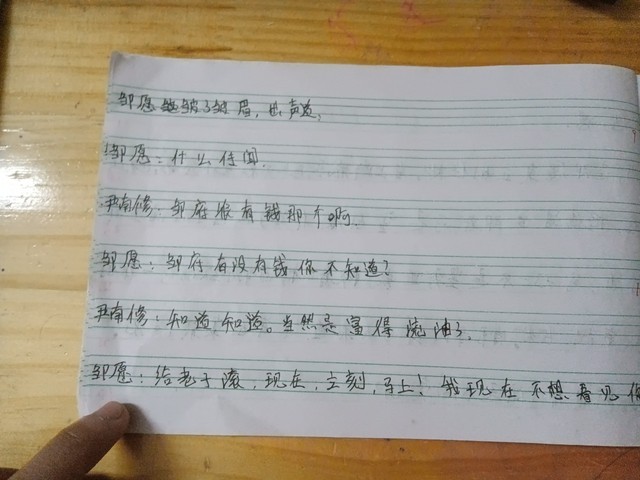 邹愿皱了皱眉，出声道，
邹愿：什么传闻.
尹南修：邹府很有钱那个啊.
邹愿：邹府有没有钱你不知道？
尹南修：知道知道。当然是富得流油了.
邹愿：给老子滚，现在，立刻，马上！我现在不想看见你